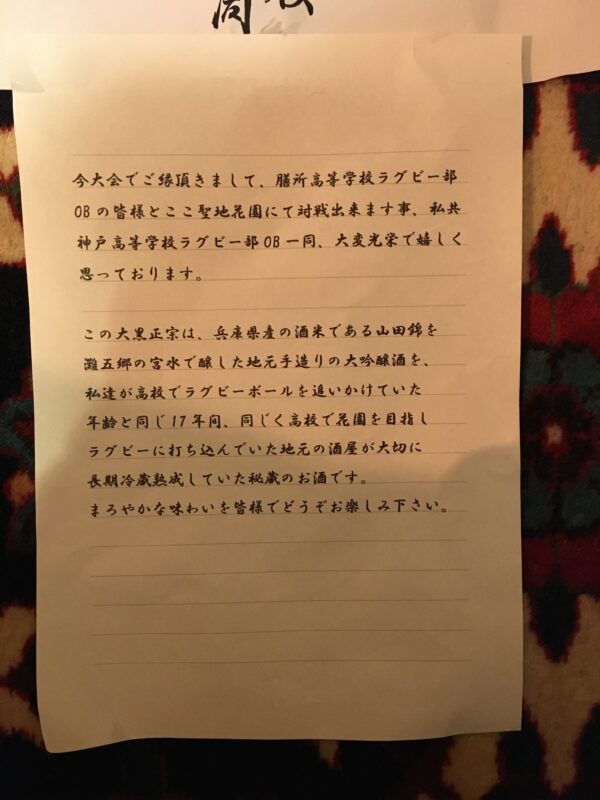 高校
今大会でご縁頂きまして、膳所高等学校ラグビー部
OBの皆様とここ聖地花園にて対戦出来ます事、私共
神戸高等学校ラグビー部OB一同、大変光栄で嬉しく
思っております。
この大黒正宗は、兵庫県産の酒米である山田錦を
灘五郷の宮水で醸した地元手造りの大吟醸酒を、
私達が高校でラグビーボールを追いかけていた
年齢と同じ17年间、同じく高校で花園を目指し
ラグビーに打ち込んでいた地元の酒屋が大切に
長期冷蔵熟成していた秘蔵のお酒です。
まろやかな味わいを皆様でどうぞお楽しみ下さい。